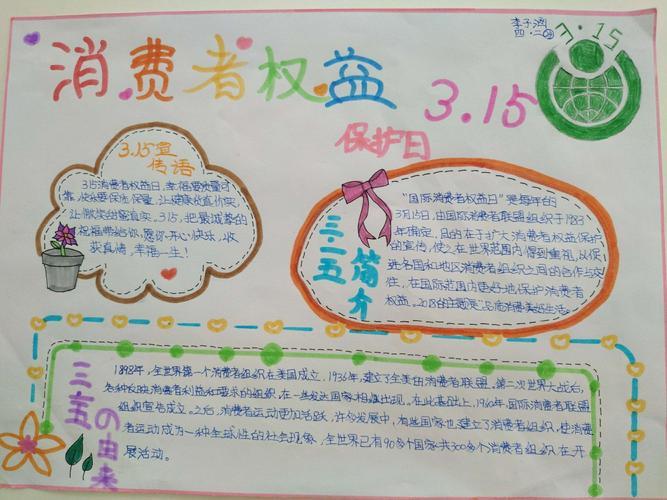 消费者权益
3.15
李子涵
四.二
3·15
保护日
3.15宣
传语
3.15消费者权益日,幸福要质量可
靠,快乐要保质保量,让健康更真价实,
让微笑甜蜜真实,3.15,把最诚挚的
祝福带给你,愿你开心快乐,收
获真情,幸福一生!
三·一五
简介
"国际消费者权益日"是每年的
3月15日,由国际消费者联盟组织于1983
年确定,目的在于扩大消费者权益保护
的宣传,使之在世界范围内得到重视,以促
进各国和地区消费者组织之间的合作与交
往,在国际范围内更好地保护消费者
权益。2018的主题是"品质消费美好生活。
三·一五
の由来
1898年,全世界第一个消费者组织在美国成立,1936年,建立了全美的消费者联盟。第二次世界大战后,
各种反映消费者利益和要求的组织,在一些发达国家相继出现。在此基础上,1960年,国际消费者联盟
组织宣告成立。之后,消费者运动更加活跃,许多发展中,有些国家也建立了消费者组织,使消费
者运动成为一种全球性的社会现象,全世界已有90多个国家共300多个消费者组织在开
展活动。